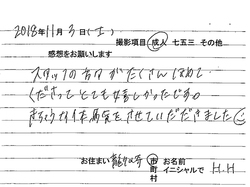 2018年11月3日(土)
撮影項目 成人 七五三 その他
感想をお願いします
スタッフの方々がたくさんほめて
くださってとても嬉しかったです。
きちょうな体験をさせていただきました
お住まい 龍ヶ崎 市町村 お名前 イニシャルで H.H